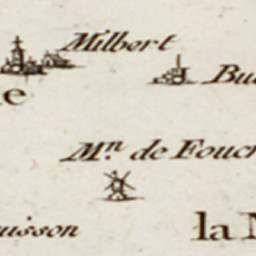 Milbert
Bu
e
Mn. de Fouc
uisson
la